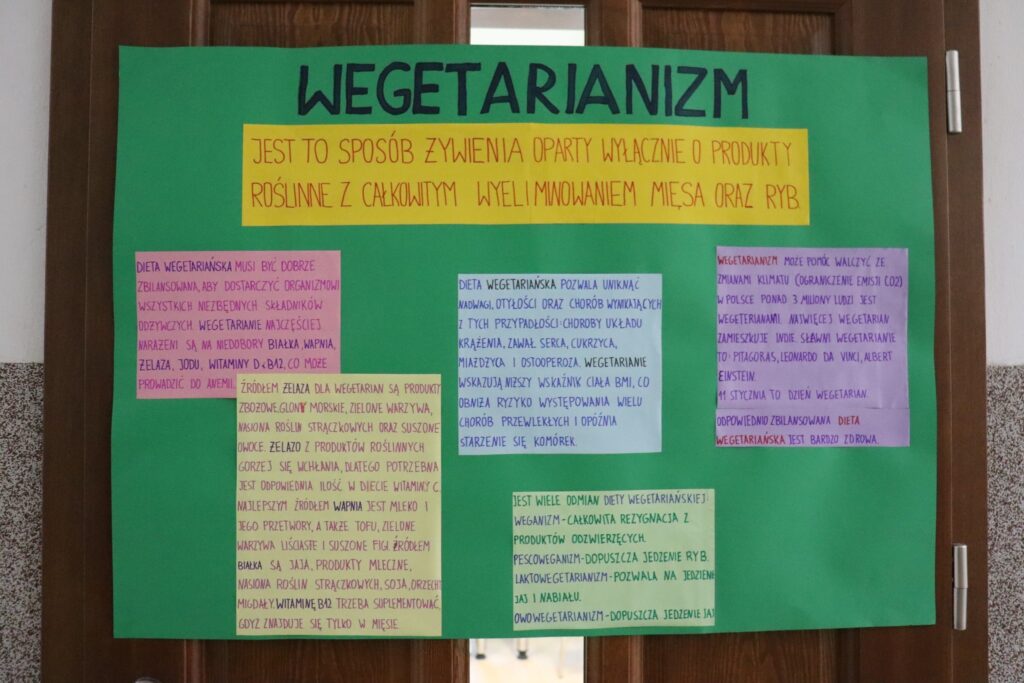 WEGETARIANIZM
JEST TO SPOSÓB ŻYWIENIA OPARTY WYŁĄCZNIE O PRODUKTY
ROŚLINNE Z CAŁKOWITYM WYELIMINOWANIEM MIĘSA ORAZ RYB.
DIETA WEGETARIAŃSKA MUSI BYĆ DOBRZE
ZBILANSOWANA, ABY DOSTARCZYĆ ORGANIZMOWI
WSZYSTKICH NIEZBĘDNYCH SKŁADNIKÓW
ODŻYWCZYCH. WEGETARIANIE NAJCZĘŚCIEJ
NARAŻENI SĄ NA NIEDOBORY BIAŁKA, WAPNIA,
ŻELAZA, JODU, WITAMINY D i B12, CO MOŻE
PROWADZIĆ DO ANEMII.
ŹRÓDŁEM ŻELAZA DLA WEGETARIAN SĄ PRODUKTY
ZBOŻOWE, GLONY MORSKIE, ZIELONE WARZYWA,
NASIONA ROŚLIN STRĄCZKOWYCH ORAZ SUSZONE
OWOCE. ŻELAZO Z PRODUKTÓW ROŚLINNYCH
GORZEJ SIĘ WCHŁANIA, DLATEGO POTRZEBNA
JEST ODPOWIEDNIA ILOŚĆ W DIECIE WITAMINY C.
NAJLEPSZYM ŹRÓDŁEM WAPNIA JEST MLEKO I
JEGO PRZETWORY, A TAKŻE TOFU, ZIELONE
WARZYWA LIŚCIASTE I SUSZONE FIGI. ŹRÓDŁEM
BIAŁKA SĄ JAJA, PRODUKTY MLECZNE,
NASIONA ROŚLIN STRĄCZKOWYCH, SOJA, ORZECHY
MIGDAŁY. WITAMINĘ B12 TRZEBA SUPLEMENTOWAĆ,
GDYŻ ZNAJDUJE SIĘ TYLKO W MIĘSIE.
DIETA WEGETARIAŃSKA POZWALA UNIKNĄĆ
NADWAGI, OTYŁOŚCI ORAZ CHORÓB WYNIKAJĄCYCH
Z TYCH PRZYPADŁOŚCI: CHOROBY UKŁADU
KRĄŻENIA, ZAWAŁ SERCA, CUKRZYCA,
MIAŻDŻYCA I OSTOOPEROZA. WEGETARIANIE
WSKAZUJĄ NIŻSZY WSKAŹNIK CIAŁA BMI, CO
OBNIŻA RYZYKO WYSTĘPOWANIA WIELU
CHORÓB PRZEWLEKŁYCH I OPÓŹNIA
STARZENIE SIĘ KOMÓREK.
WEGETARIANIZM MOŻE POMÓC WALCZYĆ ZE
ZMIANAMI KLIMATU (OGRANICZENIE EMISJI CO2)
W POLSCE PONAD 3 MILIONY LUDZI JEST
WEGETERIANAMI. NAJWIĘCEJ WEGETARIAN
ZAMIESZKUJE INDIE. SŁAWNI WEGETARIANIE
TO: PITAGORAS, LEONARDO DA VINCI, ALBERT
EINSTEIN.
11 STYCZNIA TO DZIEŃ WEGETARIAN.
ODPOWIEDNIO ZBILANSOWANA DIETA
WEGETARIAŃSKA JEST BARDZO ZDROWA.
JEST WIELE ODMIAN DIETY WEGETARIAŃSKIEJ:
WEGANIZM - CAŁKOWITA REZYGNACJA Z
PRODUKTÓW ODZWIERZĘCYCH.
PESCOWEGANIZM - DOPUSZCZA JEDZENIE RYB.
LAKTOWEGETARIANIZM - POZWALA NA JEDZENIE
JAJ I NABIAŁU.
OWOWEGETARIANIZM - DOPUSZCZA JEDZENIE JAJ